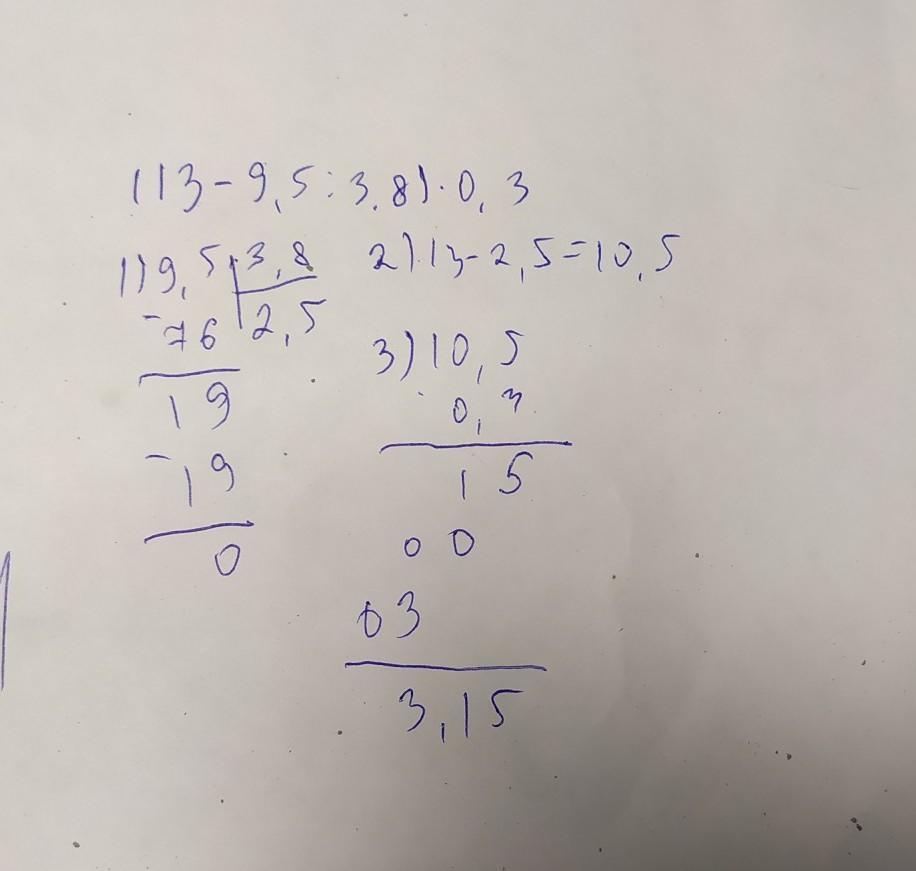 (13-9,5:3,8)·0,3
1)9,5 3,8
-76 2,5
19
-19
0
2)13-2,5=10,5
3)10,5
0,3
15
00
03
3,15